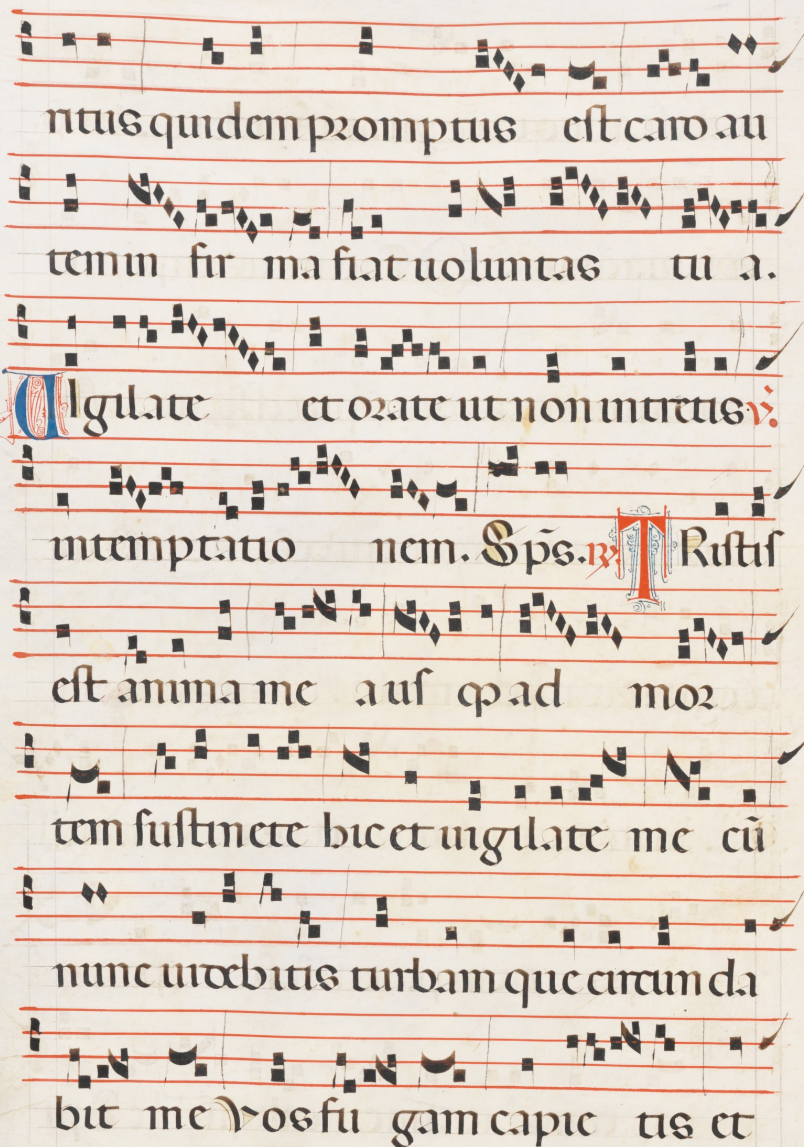 ritus quidem promptus est caro au
tem in fir ma fiat uoluntas tu a.
UIgilate et orate ut non intretis ℣.
in temptatio nem. Sp̄s. ℟. TRistis
est anima me a usq ad mor
tem sustinete hic et uigilate me cū
nunc uidebitis turbam que circunda
bit me Vos fu gam capie tis et